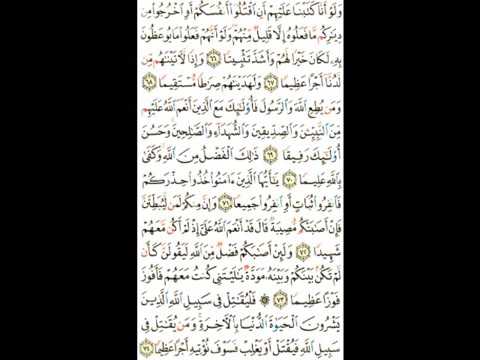 وَلَوْ أَنَّا كَتَبْنَا عَلَيْهِمْ أَنِ اقْتُلُوا أَنفُسَكُمْ أَوِ اخْرُجُوا مِن
دِيَارِكُم مَّا فَعَلُوهُ إِلَّا قَلِيلٌ مِّنْهُمْ وَلَوْ أَنَّهُمْ فَعَلُوا مَا يُوعَظُونَ
بِهِ لَكَانَ خَيْرًا لَّهُمْ وَأَشَدَّ تَثْبِيتًا ٦٦ وَإِذًا لَّآتَيْنَاهُم مِّن
لَّدُنَّا أَجْرًا عَظِيمًا ٦٧ وَلَهَدَيْنَاهُمْ صِرَاطًا مُّسْتَقِيمًا ٦٨
وَمَن يُطِعِ اللَّهَ وَالرَّسُولَ فَأُولَٰئِكَ مَعَ الَّذِينَ أَنْعَمَ اللَّهُ عَلَيْهِم
مِّنَ النَّبِيِّينَ وَالصِّدِّيقِينَ وَالشُّهَدَاءِ وَالصَّالِحِينَ وَحَسُنَ
أُولَٰئِكَ رَفِيقًا ٦٩ ذَٰلِكَ الْفَضْلُ مِنَ اللَّهِ وَكَفَىٰ
بِاللَّهِ عَلِيمًا ٧٠ يَا أَيُّهَا الَّذِينَ آمَنُوا خُذُوا حِذْرَكُمْ
فَانفِرُوا ثُبَاتٍ أَوِ انفِرُوا جَمِيعًا ٧١ وَإِنَّ مِنكُمْ لَمَن لَّيُبَطِّئَنَّ
فَإِنْ أَصَابَتْكُم مُّصِيبَةٌ قَالَ قَدْ أَنْعَمَ اللَّهُ عَلَيَّ إِذْ لَمْ أَكُن مَّعَهُمْ
شَهِيدًا ٧٢ وَلَئِنْ أَصَابَكُمْ فَضْلٌ مِّنَ اللَّهِ لَيَقُولَنَّ كَأَن
لَّمْ تَكُن بَيْنَكُمْ وَبَيْنَهُ مَوَدَّةٌ يَا لَيْتَنِي كُنتُ مَعَهُمْ فَأَفُوزَ
فَوْزًا عَظِيمًا ٧٣ ۞ فَلْيُقَاتِلْ فِي سَبِيلِ اللَّهِ الَّذِينَ
يَشْرُونَ الْحَيَاةَ الدُّنْيَا بِالْآخِرَةِ وَمَن يُقَاتِلْ فِي
سَبِيلِ اللَّهِ فَيُقْتَلْ أَوْ يَغْلِبْ فَسَوْفَ نُؤْتِيهِ أَجْرًا عَظِيمًا ٧٤